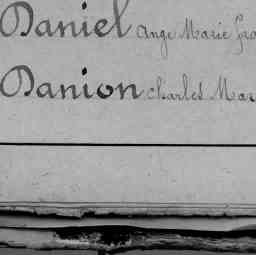 Daniel Ange Marie
Danion Charles Mar